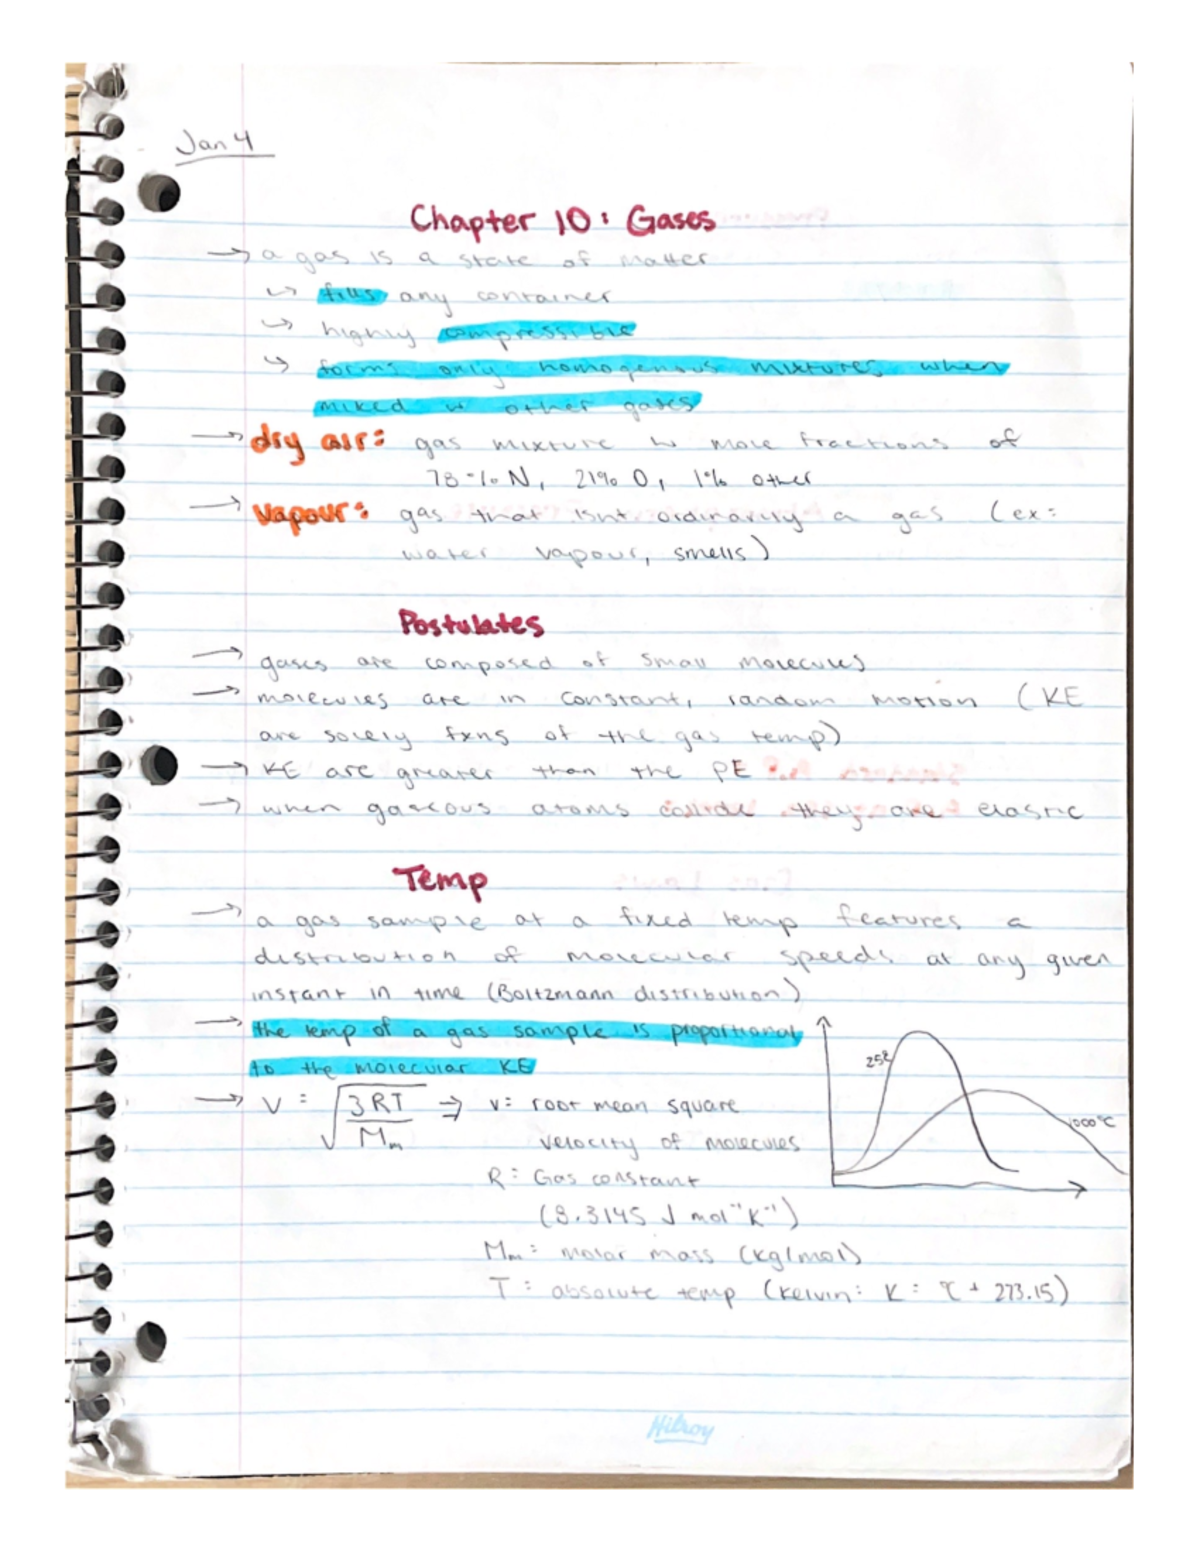 Jan 4
Chapter 10: Gases
→ a gas is a state of matter
↳ fills any container
↳ highly compressible
↳ forms only homogenous mixtures when
mixed w other gases
→ dry air: gas mixture w mole fractions of
78% N, 21% O, 1% other
→ Vapour: gas that isnt ordinarily a gas (ex:
water vapour, smells)
Postulates
→ gases are composed of small molecules
→ molecules are in constant, random motion (KE
are solely fxns of the gas temp)
→ KE are greater than the PE
→ when gaseous atoms collide they are elastic
Temp
→ a gas sample at a fixed temp features a
distribution of molecular speeds at any given
instant in time (Boltzmann distribution)
→ the temp of a gas sample is proportional
to the molecular KE
25°C
1000°C
→ V = √(3RT/Mm) ⇒ v= root mean square
velocity of molecules
R= Gas constant
(8.3145 J mol⁻¹K⁻¹)
Mm= molar mass (kg/mol)
T= absolute temp (kelvin: K = °C + 273.15)
Hilroy